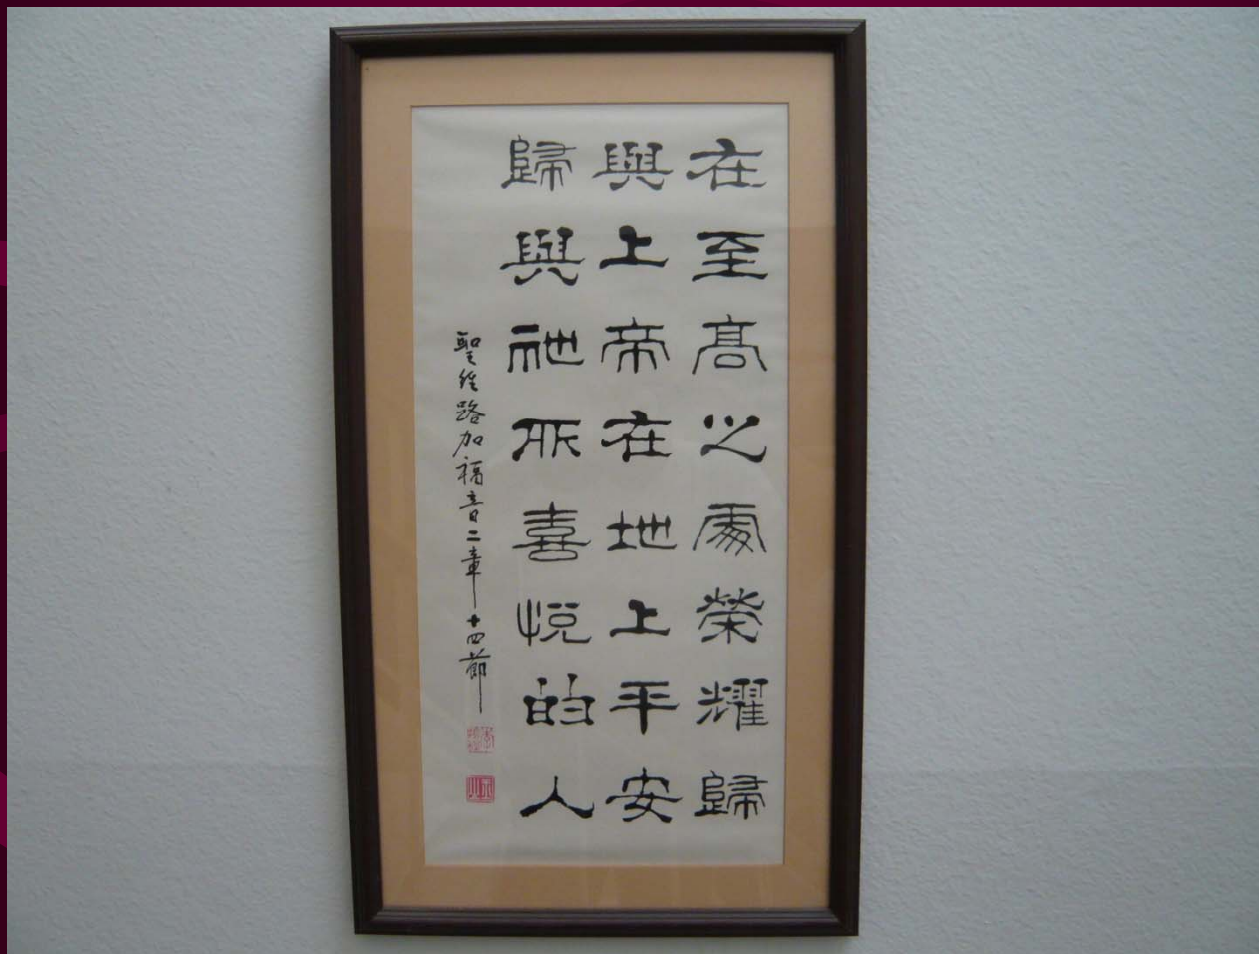 在至高之處榮耀歸
與上帝在地上平安
歸與祂所喜悅的人
聖經路加福音二章十四節